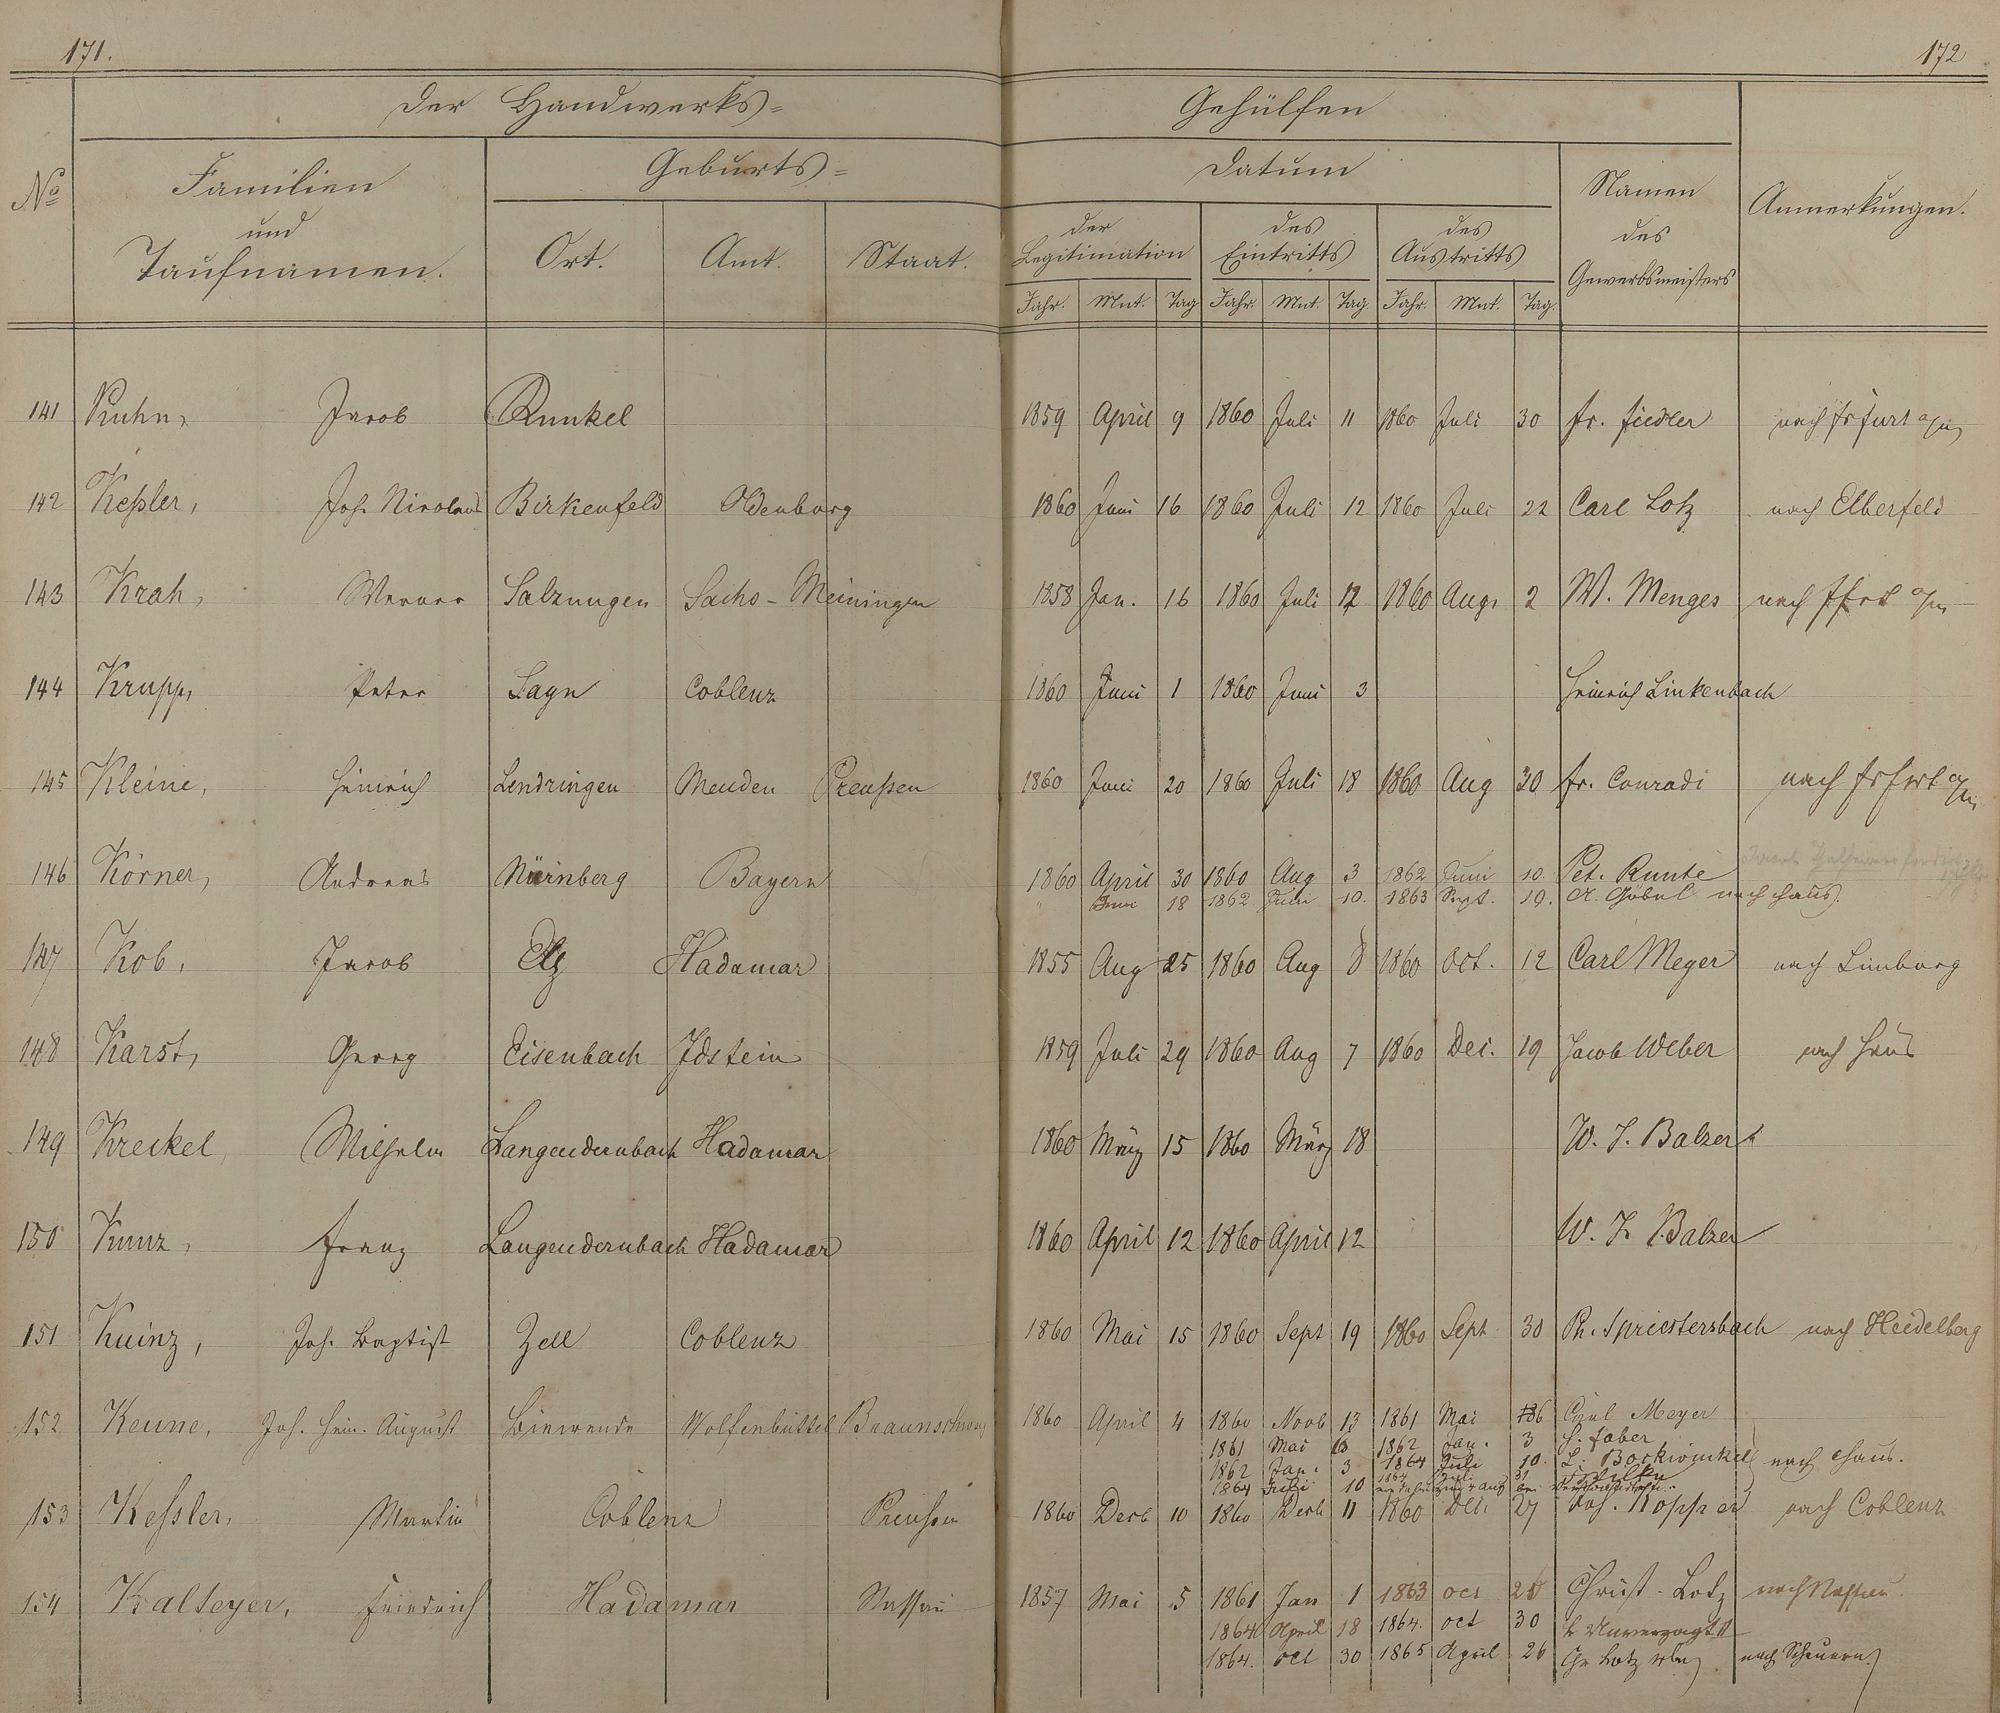 171.
172
Der Handwerks=
Gehülfen
No
Familien
und
Taufnamen.
Geburts=
Ort. Amt. Staat.
Datum
der Legitimation
des Eintritts
des Austritts
Jahr. Mnt. Tag Jahr. Mnt. Tag. Jahr. Mnt. Tag.
Namen
des
Gewerbsmeisters
Anmerkungen.
141 Kuhn, Jacob Runkel 1859 April 9 1860 Juli 11 1860 Juli 30 Fr. Fiedler nach Frfurt a/m
142 Keßler, Joh. Nicolaus Birkenfeld Oldenburg 1860 Juni 16 1860 Juli 12 1860 Juli 22 Carl Lotz nach Elberfeld
143 Krah, Werner Salzungen Sachs-Meiningen 1858 Jan. 16 1860 Juli 12 1860 Aug. 2 W. Menges nach Ffrt a/m
144 Krupp, Peter Sayn Coblenz 1860 Juni 1 1860 Juni 3 Heinrich Linkenbach
145 Kleine, Heinrich Lendringen Menden Preußen 1860 Juni 20 1860 Juli 18 1860 Aug 30 Fr. Conradi nach Frfrt a/m
146 Körner, Andreas Nürnberg Bayern 1860 April 30 1860 Aug 3 1862 Juni 10. Pet. Runte
Juni 18 1862 Juni 10. 1863 Sept. 19. A. Göbel nach Haus.
147 Kob, Jacob Elz Hadamar 1855 Aug 25 1860 Aug 8 1860 Oct. 12 Carl Meyer nach Limburg
148 Karst, Georg Eisenbach Idstein 1859 Juli 29 1860 Aug 7 1860 Dec. 19 Jacob Weber nach Haus
149 Kreckel, Wilhelm Langendernbach Hadamar 1860 März 15 1860 März 18 W. J. Balzer
150 Kunz, Franz Langendernbach Hadamar 1860 April 12 1860 April 12 W. J. Balzer
151 Kuinz, Joh. Baptist Zell Coblenz 1860 Mai 15 1860 Sept 19 1860 Sept 30 Ph. Spriestersbach nach Heidelberg
152 Keune, Joh. Hein. August Biewende Wolfenbüttel Braunschweig 1860 April 4 1860 Novb 13 1861 Mai 6 Carl Meyer
1861 Mai 1862 Jan. 3 H. Faber
1862 Jan. 3 1864 Juli 10. L. Bockwinkel nach Haus.
1864 Juli 10 1864 Juli 31
153 Keßler, Martin Coblenz Preußen 1860 Decb 10 1860 Decb 11 1860 Dec. 27 Jos. Kopper nach Coblenz
154 Kalteyer, Friedrich Hadamar Nassau 1857 Mai 5 1861 Jan 1 1863 Oct Christ. Lotz nach Nassau.
1864 April 18 1864. Oct 30 L Unverzagt
1864. Oct 30 1865 April 26 Chr Lotz nach Scheuern.